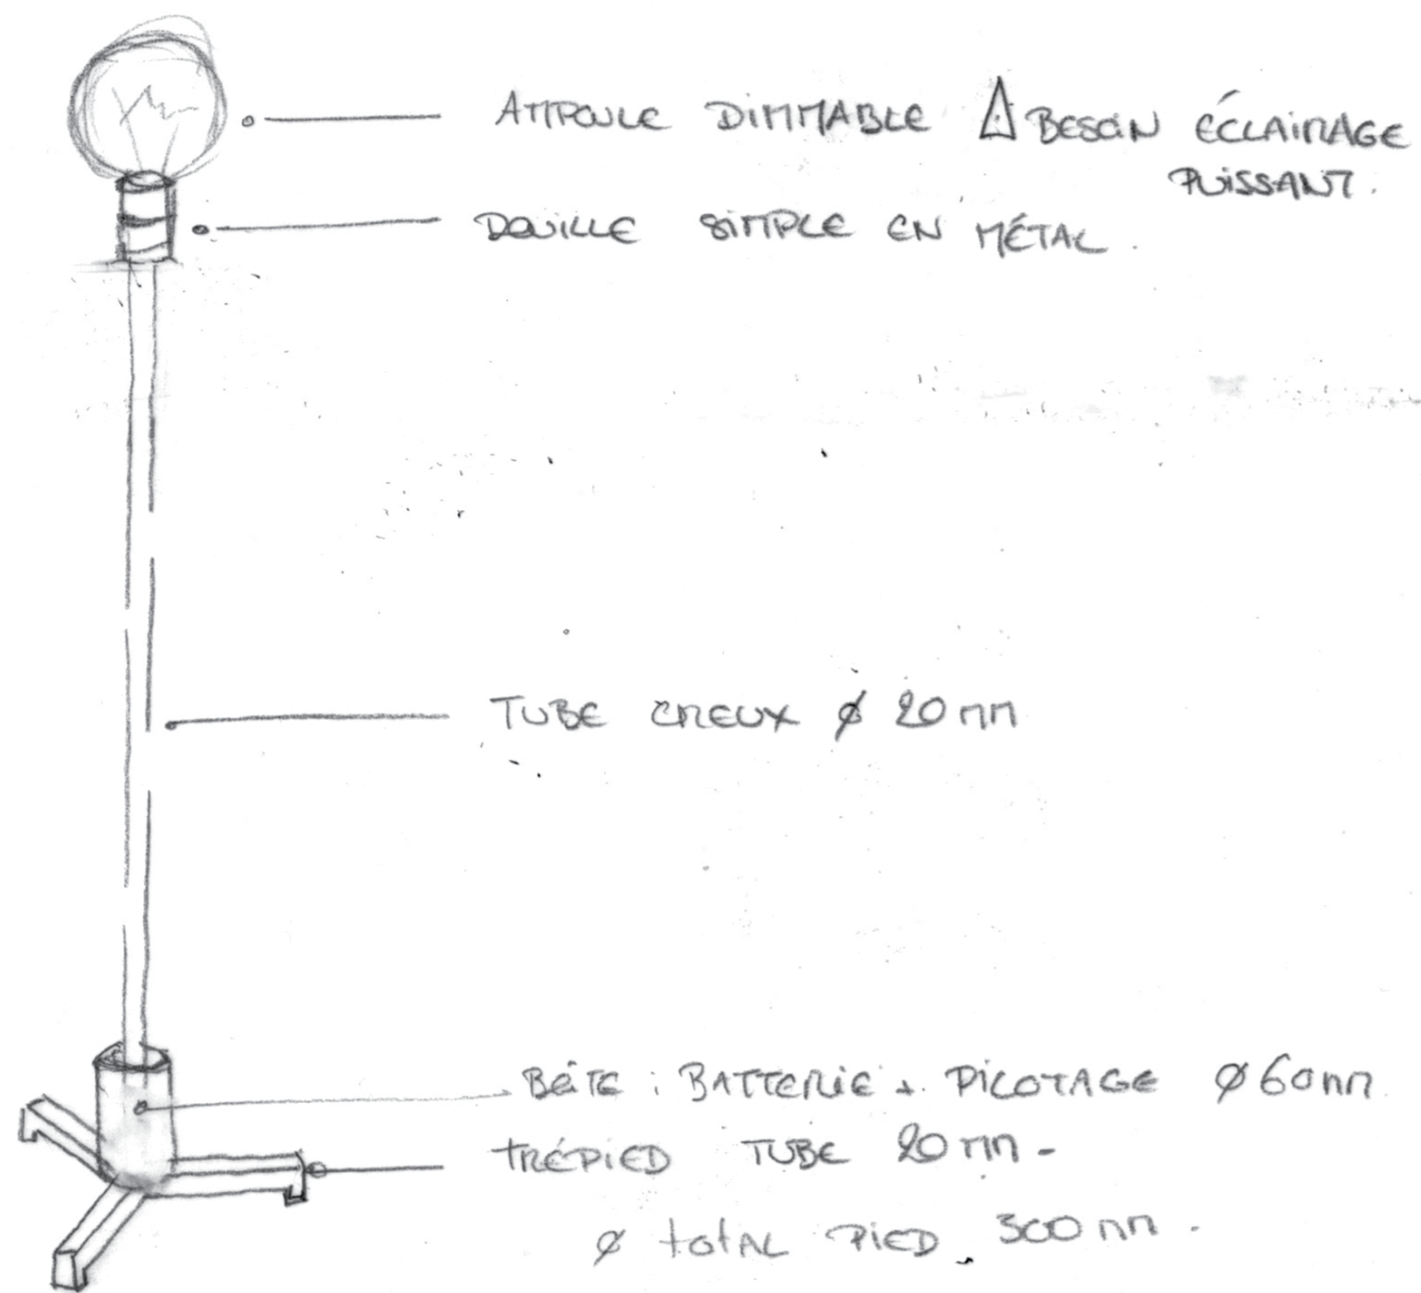 AMPOULE DIMMABLE ⚠ BESOIN ÉCLAIRAGE
PUISSANT.
DOUILLE SIMPLE EN MÉTAL.
TUBE CREUX Ø 20 mm
BOITE : BATTERIE + PILOTAGE Ø 60mm
TRÉPIED TUBE 20 mm -
Ø total PIED 300 mm.